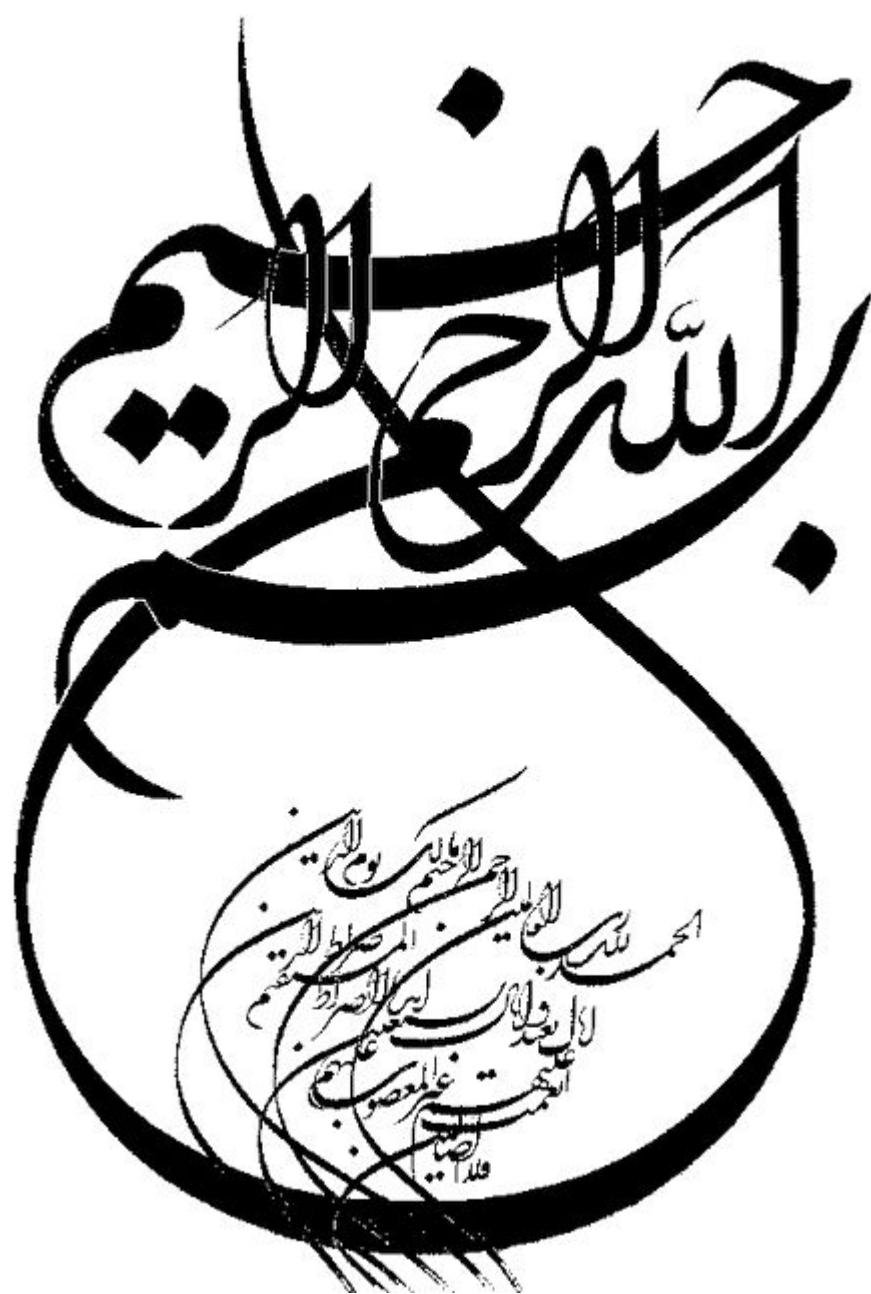 بسم الله الرحمن الرحيم
الحمد لله رب العالمين
الرحمن الرحيم مالك يوم الدين
اياك نعبد واياك نستعين اهدنا الصراط المستقيم
صراط الذين انعمت عليهم غير المغضوب عليهم
ولا الضالين